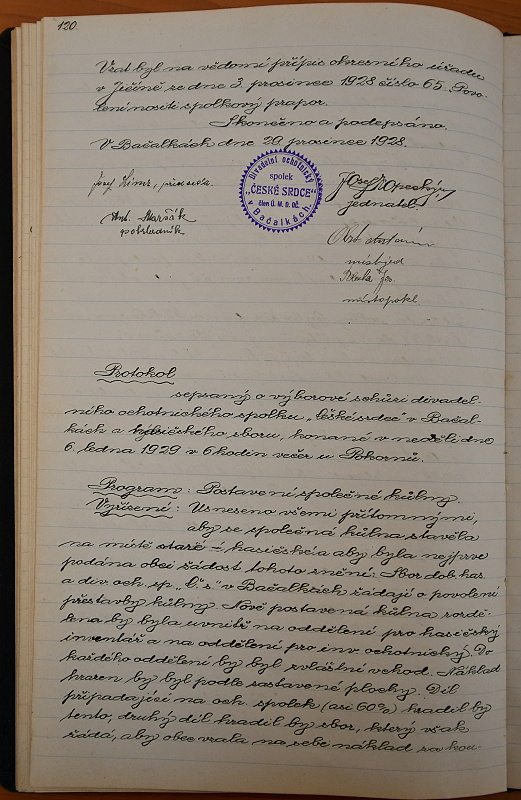 120.
Vzat byl na vědomí přípis okresního úřadu
v Jičíně se dne 3. prosince 1928 číslo 65. Povo-
lení nositi spolkový prapor.
Skončeno a podepsáno.
V Bačalkách dne 29. prosince 1928.
Divadelní ochotnický
spolek
„ČESKÉ SRDCE"
člen Ú. M. D. OČ.
v Bačalkách.
Josef
jednatel.
Ant. Maršák
pokladník
místjed
místopokl
Protokol
sepsaný o výborové schůzi divadel-
ního ochotnického spolku „České srdce" v Bačal-
kách a hasičského sboru, konané v neděli dne
6. ledna 1929 v 6 hodin večer u Pokornů.
Program: Postavení společné kůlny.
Vyřízení: Usneseno všemi přítomnými,
aby se společná kůlna stavěla
na místě staré - hasičské a aby byla nejprve
podána obci žádost tohoto znění: Sbor dob. has.
a div. och. sp. „Č. s." v Bačalkách žádají o povolení
přestavby kůlny. Nově postavená kůlna rozdě-
lena by byla uvnitř na oddělení pro hasičský
inventář a na oddělení pro inv. ochotnický. Do
každého oddělení by byl zvláštní vchod. Náklad
hrazen by byl podle zastavené plochy. Díl
připadající na och. spolek (asi 60%) hradil by
tento, druhý díl hradil by sbor, který však
žádá, aby obec vzala na sebe náklad za kou-